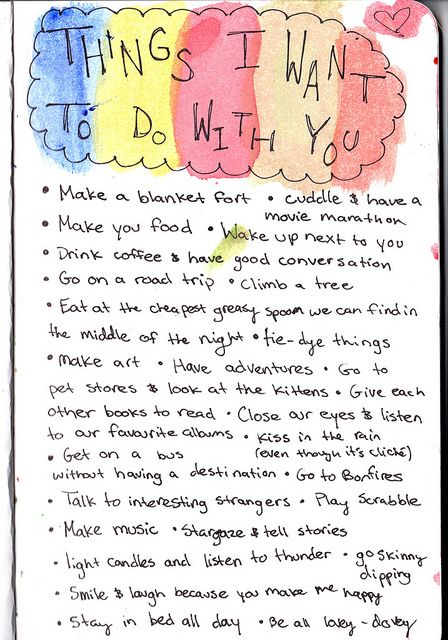 THINGS I WANT
TO DO WITH YOU
• Make a blanket fort • cuddle & have a
movie marathon
• Make you food • Wake up next to you
• Drink coffee & have good conversation
• Go on a road trip • Climb a tree
• Eat at the cheapest greasy spoon we can find in
the middle of the night • tie-dye things
• make art • Have adventures • Go to
pet stores & look at the kittens • Give each
other books to read • Close our eyes & listen
to our favourite albums • kiss in the rain
(even though it's cliché)
• Get on a bus
without having a destination • Go to Bonfires
• Talk to interesting strangers • Play Scrabble
• Make music • Stargaze & tell stories
• light candles and listen to thunder • go skinny
dipping
• Smile & laugh because you make me happy
• Stay in bed all day • Be all lovey-dovey